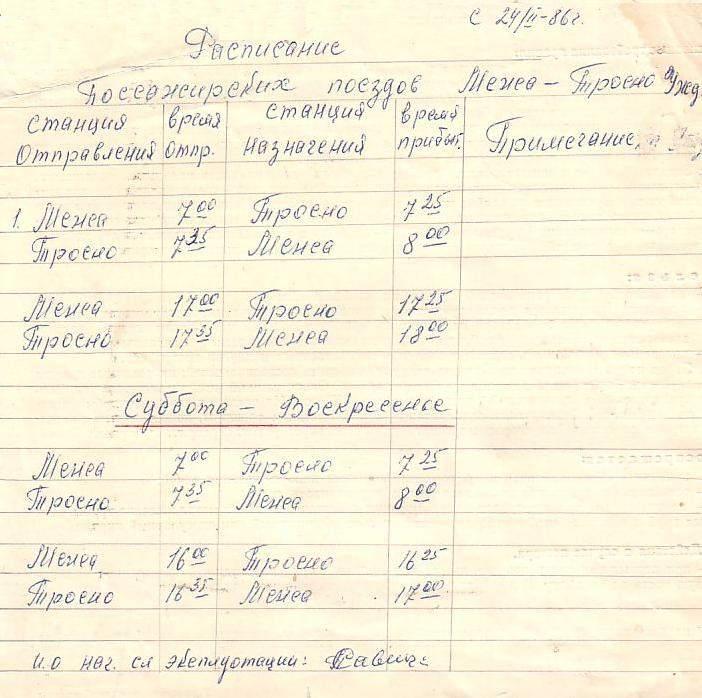 с 24/II-86г.
Расписание
Поссажирских поездов Межа – Тросно Ужд
Станция время Станция время
Отправления отпр. назначения прибыт. Примечание
1. Межа 7 00 Тросно 7 25
Тросно 7 35 Межа 8 00
Межа 17 00 Тросно 17 25
Тросно 17 35 Межа 18 00
Суббота – Воскресенье
Межа 7 00 Тросно 7 25
Тросно 7 35 Межа 8 00
Межа 16 00 Тросно 16 25
Тросно 16 35 Межа 17 00
и.о нач. сл эксплуотации: